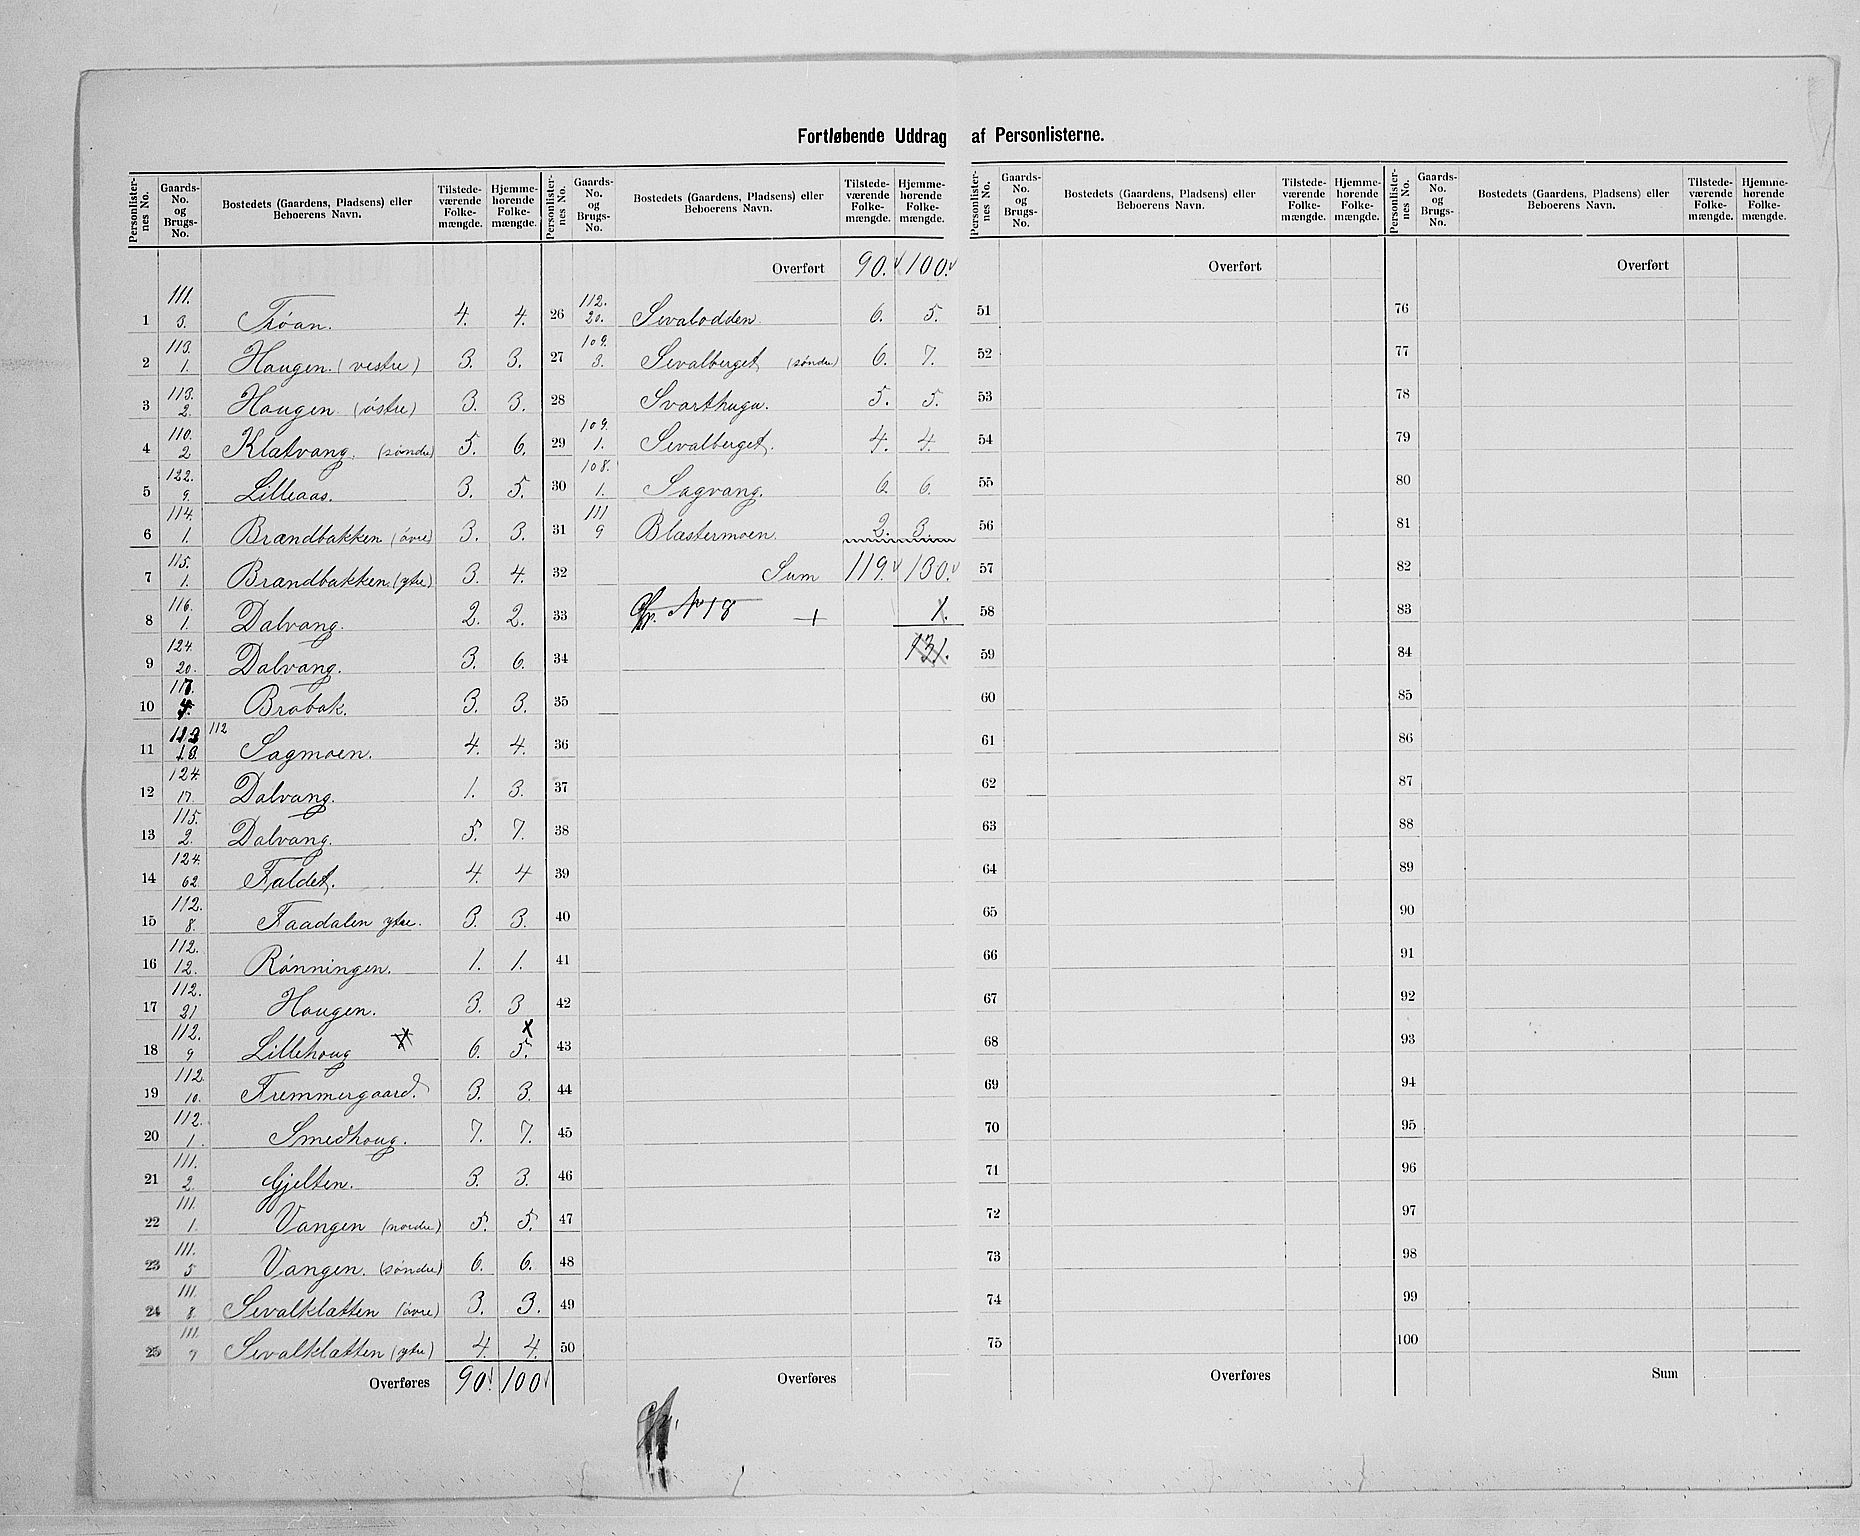 Fortløbende Uddrag af Personlisterne.
Personlisternes No. | Gaards-No. og Brugs-No. | Bostedets (Gaardens, Pladsens) eller Beboerens Navn. | Tilstedeværende Folkemængde. | Hjemmehørende Folkemængde.
1 | 111. 3. | Thöan. | 4. | 4.
2 | 113. 1. | Haugen. (vestre) | 3. | 3.
3 | 113. 2. | Haugen (östre) | 3. | 3.
4 | 110. 2 | Klætvang. (söndre) | 5. | 6.
5 | 122. 9. | Lilleaas. | 3. | 5.
6 | 114. 1. | Brændbakken (övre) | 3. | 3.
7 | 115. 1. | Brændbakken (ytre) | 3. | 4.
8 | 116. 1. | Dalvang. | 2. | 2.
9 | 124. 20. | Dalvang. | 3. | 6.
10 | Brobak. | 3. | 3.
11 | 112 | Sagmoen. | 4. | 4.
12 | 124. 17. | Dalvang. | 1. | 3.
13 | 115. 2. | Dalvang. | 5. | 7.
14 | 124. 62. | Faldet. | 4. | 4
15 | 112. 8. | Faadalen ytre. | 3. | 3.
16 | 112. 12. | Rönningen. | 1. | 1.
17 | 112. 21 | Haugen. | 3. | 3
18 | 112. 9 | Lillehoug | 6. | 5.
19 | 112. 10. | Fremmergaard. | 3. | 3.
20 | 112. 1 | Smedhoug. | 7. | 7.
21 | 111. 2. | Gjelten. | 3. | 3.
22 | 111. 1. | Vangen (nordre) | 5. | 5.
23 | 111. 5 | Vangen. (söndre) | 6. | 6.
24 | 111. 8. | Sevalklætten (övre) | 3. | 3.
25 | 111. 7 | Sevalklætten (ytre) | 4. | 4.
Overføres | 90. | 100.
Personlisternes No. | Gaards-No. og Brugs-No. | Bostedets (Gaardens, Pladsens) eller Beboerens Navn. | Tilstedeværende Folkemængde. | Hjemmehørende Folkemængde.
Overført | 90. | 100.
26 | 112. 20. | Sevalodden. | 6. | 5.
27 | 109. 3. | Sevalberget (söndre) | 6. | 7.
28 | Svarthuga. | 5. | 5.
29 | 109. 1. | Sevalberget. | 4. | 4.
30 | 108. 1. | Sagvang. | 6. | 6.
31 | 111 9 | Blæstermoen. | 2. | 3.
32 | Sum | 119. | 130.
33 | No 18 + | 1.
34 | 131.
35
36
37
38
39
40
41
42
43
44
45
46
47
48
49
50
Overføres
Personlisternes No. | Gaards-No. og Brugs-No. | Bostedets (Gaardens, Pladsens) eller Beboerens Navn. | Tilstedeværende Folkemængde. | Hjemmehørende Folkemængde.
Overført
51
52
53
54
55
56
57
58
59
60
61
62
63
64
65
66
67
68
69
70
71
72
73
74
75
Overføres
Personlisternes No. | Gaards-No. og Brugs-No. | Bostedets (Gaardens, Pladsens) eller Beboerens Navn. | Tilstedeværende Folkemængde. | Hjemmehørende Folkemængde.
Overført
76
77
78
79
80
81
82
83
84
85
86
87
88
89
90
91
92
93
94
95
96
97
98
99
100
Sum